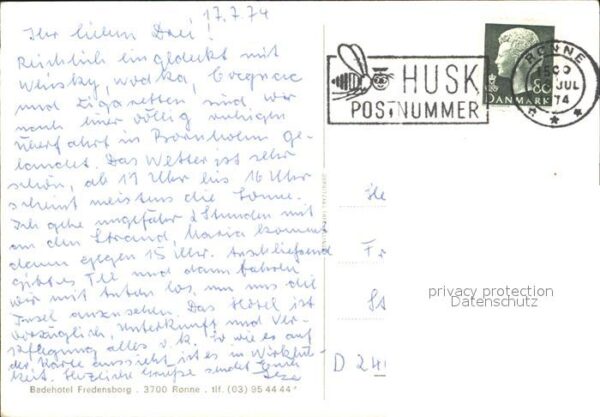 17.7.74
Ihr lieben Drei!
Reichlich eingedeckt mit
Whisky, Wodka, Cognac
und Zigaretten sind wir
nach einer völlig ruhigen
Überfahrt in Bornholm ge-
landet. Das Wetter ist sehr
schön, ab 11 Uhr bis 16 Uhr
scheint meistens die Sonne.
Ich gehe ungefähr 2 Stunden mit
an den Strand, Maria kommt
dann gegen 15 Uhr. Anschließend
gibt es Tee und dann fahren
wir mit Auto los, um uns die
Insel anzusehen. Das Hotel ist
vorzüglich, Unterkunft und Ver-
pflegung alles o.k. So wie es auf
der Karte aussieht ist es in Wirklich-
keit. Herzliche Grüße sendet Euch
Badehotel Fredensborg . 3700 Rønne . tlf. (03) 95 44 44
HUSK
POSTNUMMER
RØNNE
JUL
74
80
DANMARK
He
Fr
St
D 24
privacy protection
Datenschutz